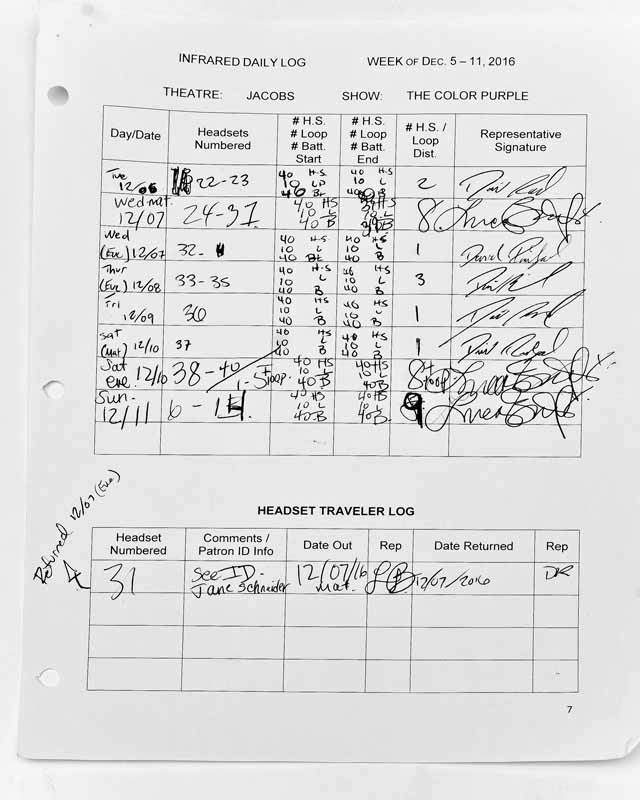 INFRARED DAILY LOG WEEK OF DEC. 5 – 11, 2016
THEATRE: JACOBS SHOW: THE COLOR PURPLE
Day/Date Headsets Numbered # H.S. # Loop # Batt. Start # H.S. # Loop # Batt. End # H.S. / Loop Dist. Representative Signature
Tue 12/06 22-23 40 H.S 10 LP 40 BL 40 H.S 10 L 40 B 2
Wed mat. 12/07 24-31 40 HS 10 L 40 B HS L 40 B 8
Wed (Eve) 12/07 32- 40 H.S 10 L 40 Bt 40 H.S 10 L 40 B 1
Thur (Eve) 12/08 33-35 40 H.S 10 L 40 B 40 H.S 10 L 40 B 3
Fri 12/09 36 40 HS 10 L 40 B 40 HS 10 L 40 B 1
Sat (Mat) 12/10 37 40 HS 10 L 40 B 40 HS 10 L 40 B 1
Sat eve. 12/10 38-40 1-5 40 HS 10 L 40B 40 HS 10 L 40B 8+
Sun- 12/11 6-14 40 HS 10 L 40B 40 HS 10 L 40B 9
HEADSET TRAVELER LOG
Returned 12/07 (Eve)
Headset Numbered Comments / Patron ID Info Date Out Rep Date Returned Rep
31 See ID- Jane Schneider 12/07/16 Mat. LB 12/07/2016 DR
7